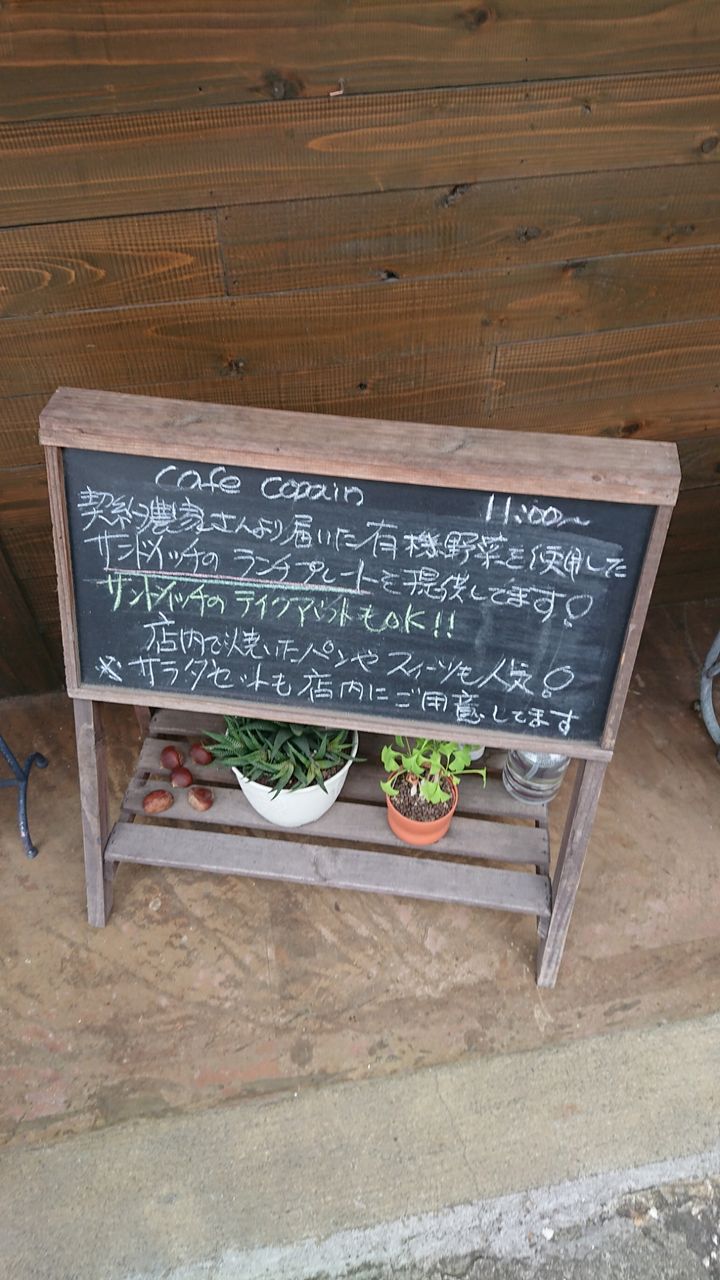 cafe copain 11:00~
契約農家さんより届いた有機野菜を使用した
サンドイッチのランチプレートを提供してます!
サンドイッチのテイクアウトもOK!!
店内で焼いたパンやスイーツも人気!
※サラダセットも店内にご用意してます